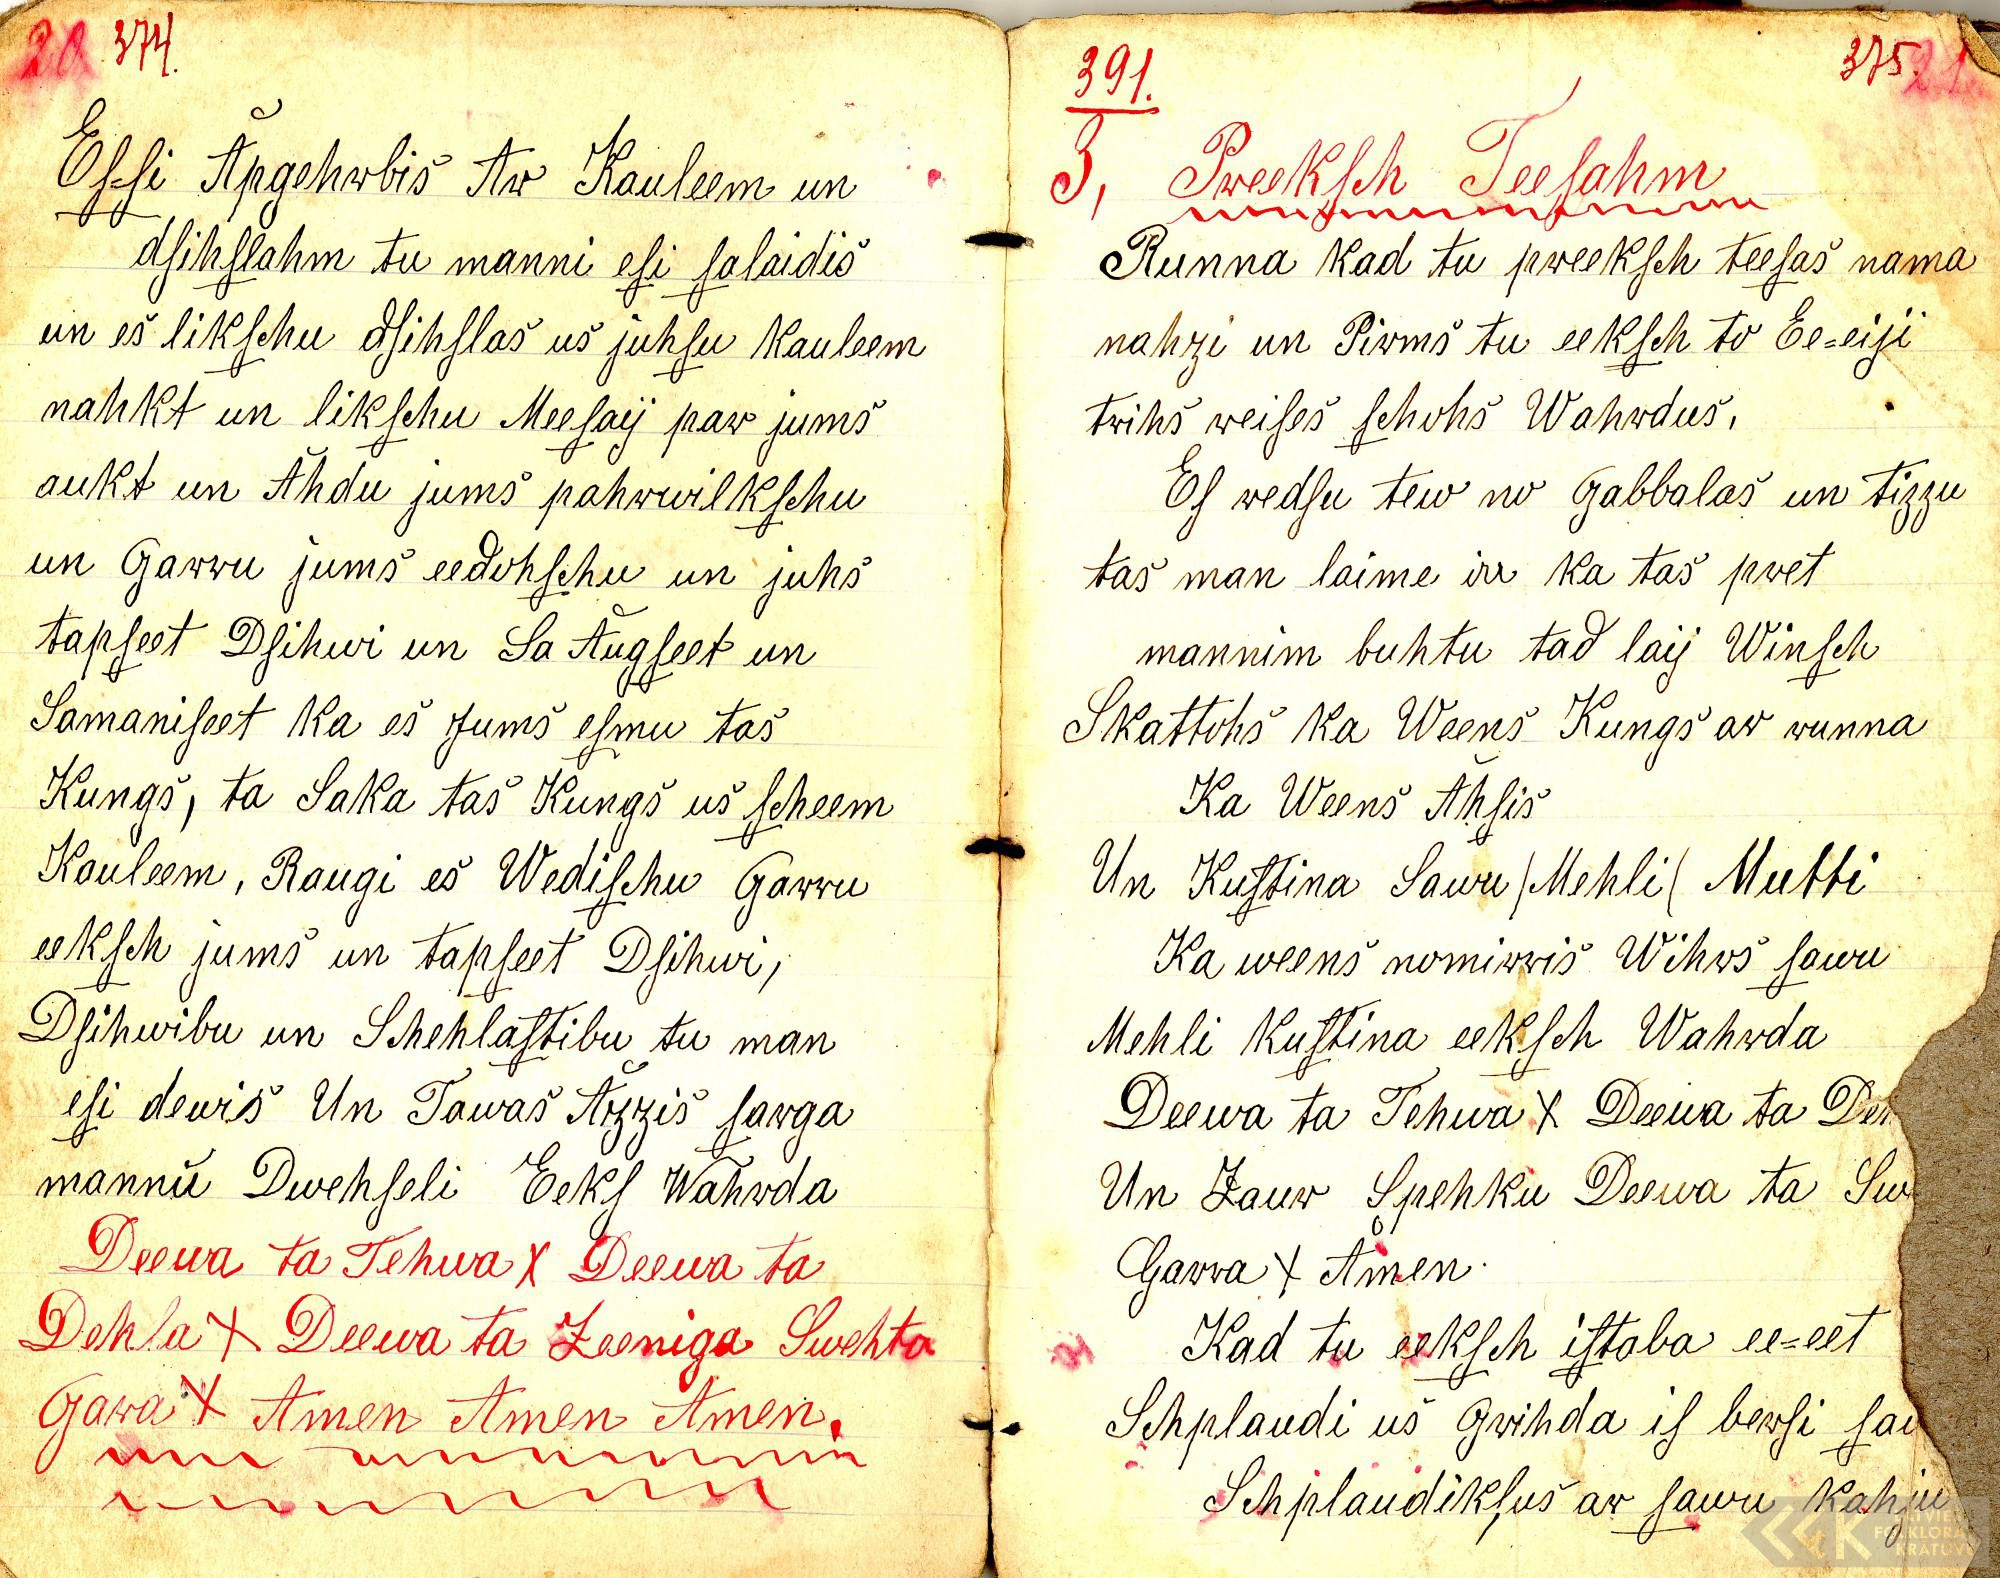 20 374.
Eſ=ſi Apgehrbis Ar Kauleem un
dſihſlahm tu manni eſi ſalaidis
un es likſchu dſihſlas us juhſu Kauleem
nahkt un likſchu Meeſaij par jums
aukt un Ahdu jums pahrwilkſchu
un Garru jums eedohſchu un juhs
tapſeet Dſihwi un Sa Augſeet un
Samaniſeet ka es Jums eſmu tas
Kungs, ta Saka tas Kungs us ſcheem
Kauleem, Raugi es Wediſchu Garru
eekſch jums un tapſeet Dſihwi,
Dſihwibu un Schehlaſtibu tu man
eſi dewis Un Tawas Azzis ſarga
mannu Dwehſeli Eekſ Wahrda
Deewa ta Tehwa X Deewa ta
Dehla X Deewa ta Zeeniga Swehta
Gara X Amen Amen Amen.
391. 375. 21.
3, Preekſch Teeſahm
Runna kad tu preekſch teeſas nama
nahzi un Pirms tu eekſch to Ee=eiji
trihs reiſes ſchohs Wahrdus,
Eſ redſu tew no Gabbalas un tizzu
tas man laime irr ka tas pret
mannim buhtu tad laij Winſch
Skattohs ka Weens Kungs ar runna
Ka Weens Ahſis
Un Kuſtina Sawu /Mehli( Mutti
Ka weens nomirris Wihrs ſawu
Mehli kuſtina eekſch Wahrda
Deewa ta Tehwa X Deewa ta Deh
Un Zaur Spehku Deewa ta Sw
Garra X Amen.
Kad tu eekſch iſtaba ee=eet
Schplaudi us Grihda iſ berſi ſaw
Schplaudikſus ar ſawu kahju
LATVIEŠU
FOLKLORAS
KRATUVE